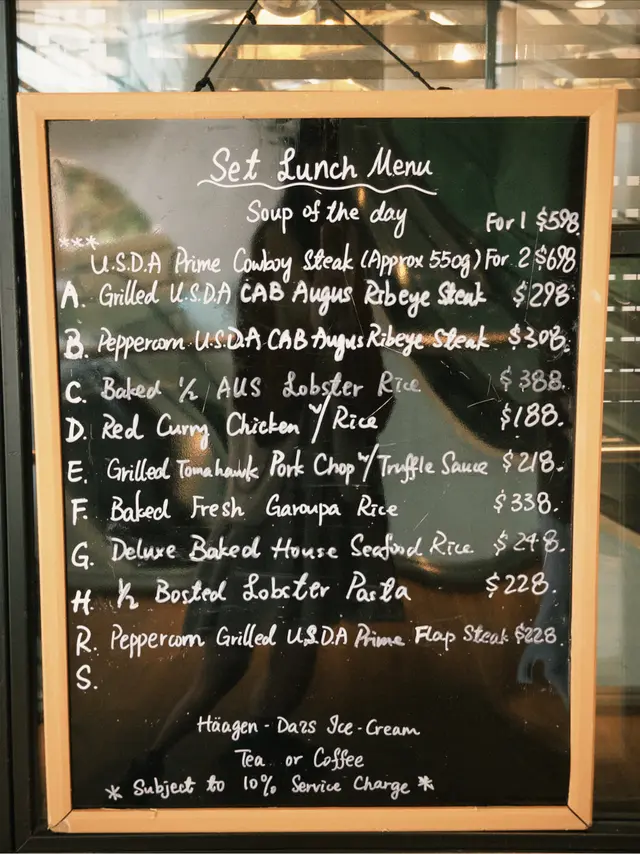 Set Lunch Menu
Soup of the day
For 1 $598.
*** U.S.D.A Prime Cowboy Steak (Approx 550g) For 2 $698
A. Grilled U.S.D.A CAB Augus Ribeye Steak $298.
B. Peppercorn U.S.D.A CAB Augus Ribeye Steak $308.
C. Baked 1/2 AUS Lobster Rice $388.
D. Red Curry Chicken w/ Rice $188.
E. Grilled Tomahawk Pork Chop w/ Truffle Sauce $218.
F. Baked Fresh Garoupa Rice $338.
G. Deluxe Baked House Seafood Rice $248.
H. 1/2 Bosted Lobster Pasta $228.
R. Peppercorn Grilled U.S.D.A Prime Flap Steak $228.
S.
Häagen-Dazs Ice-Cream
Tea or Coffee
* Subject to 10% Service Charge *